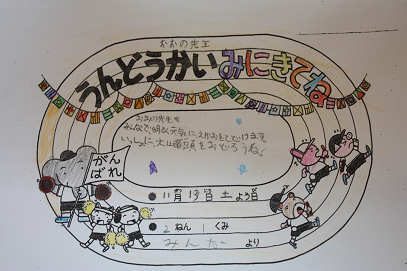 おおの先生
うんどうかい みにきてね
おおの先生へ
みんなで明るく元気に、えがおをとどけます。
いっしょに大山音頭をおどろうね!
がん
ばれ
11月 13日 土 よう日
2 ねん 1 くみ
みんな より